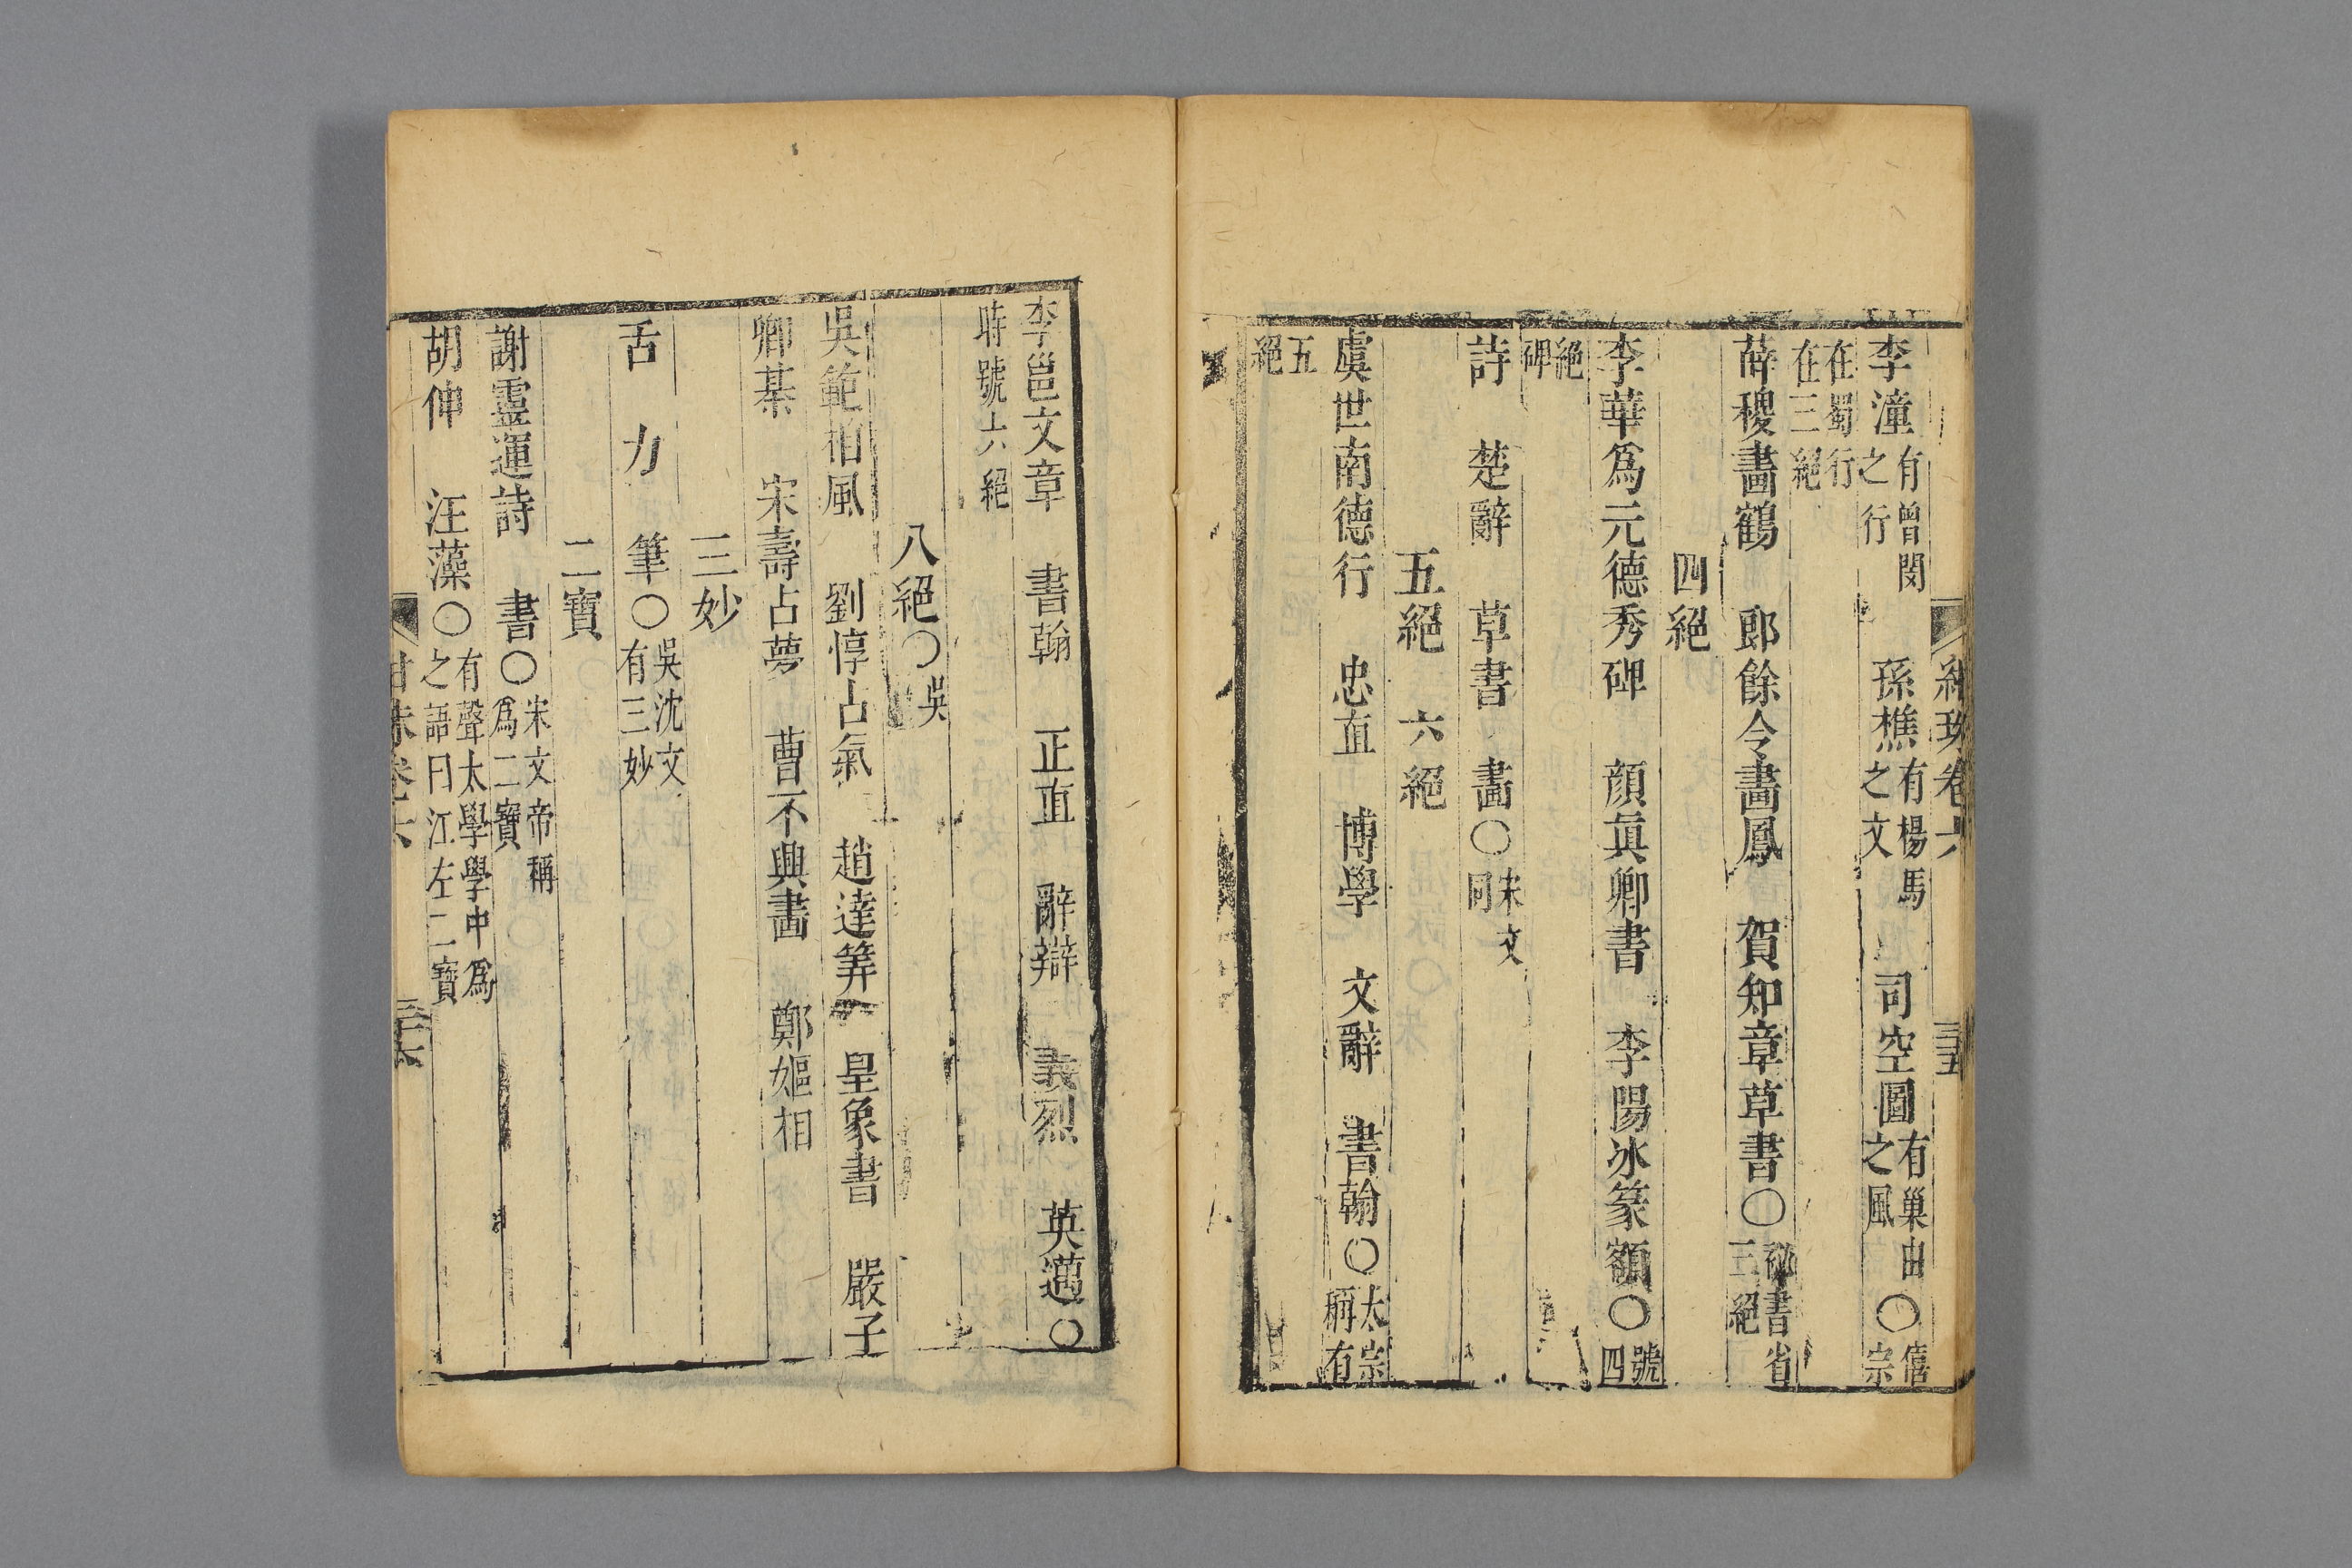 紺珠卷六 三十五
李潼有曾閔之行 孫樵有楊馬之文 司空圖有巢由之風〇僖宗
在蜀行在三絕
薛稷畫鶴 郎餘令畫鳳 賀知章草書〇秘書省三絕
四絕
李華爲元德秀碑 顔眞卿書 李陽冰篆額〇號四
絕碑
詩 楚辭 草書 畫〇宋文同
五絕 六絕
虞世南德行 忠直 博學 文辭 書翰〇太宗稱有
五絕
李邕文章 書翰 正直 辭辯 義烈 英邁〇
時號六絕
八絕〇吳
吳範相風 劉惇占氣 趙達筭 皇象書 嚴子
卿棊 宋壽占夢 曹不興畫 鄭嫗相
三妙
舌 力 筆〇吳沈文有三妙
二寶
謝靈運詩 書〇宋文帝稱爲二寶
胡伸 汪藻〇有聲太學學中爲之語曰江左二寶
三十六